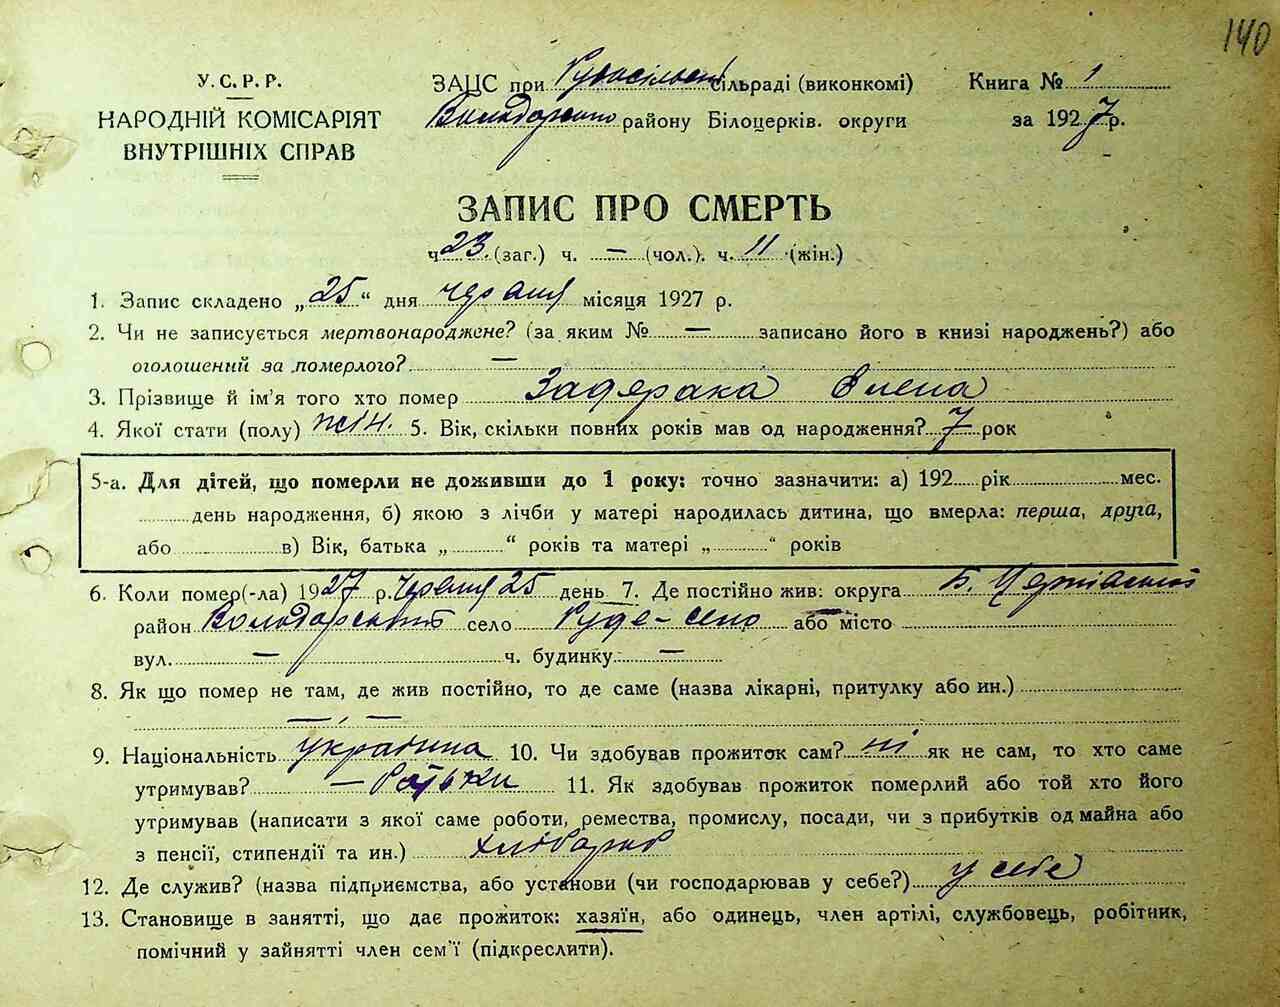 140
У. С. Р. Р.
НАРОДНІЙ КОМІСАРІЯТ
ВНУТРІШНІХ СПРАВ
ЗАЦС при Рудосільській сільраді (виконкомі)
району Білоцерків. округи
Книга № 1
за 1927 р.
ЗАПИС ПРО СМЕРТЬ
ч. 23 (заг.) ч. — (чол.). ч. 11 (жін.)
1. Запис складено „25“ дня місяця 1927 р.
2. Чи не записується мертвонароджене? (за яким № — записано його в книзі народжень?) або
оголошений за померлого? —
3. Прізвище й ім'я того хто помер Задерака Елена
4. Якої стати (полу) жін. 5. Вік, скільки повних років мав од народження? 7 рок
5-а. Для дітей, що померли не доживши до 1 року: точно зазначити: а) 192 рік мес.
день народження, б) якою з лічби у матері народилась дитина, що вмерла: перша, друга,
або в) Вік, батька „ “ років та матері „ “ років
6. Коли помер(-ла) 1927 р. 25 день 7. Де постійно жив: округа Б. Церківській
район Володарський село Руде-село або місто
вул. — ч. будинку —
8. Як що помер не там, де жив постійно, то де саме (назва лікарні, притулку або ин.)
— —
9. Національність українка 10. Чи здобував прожиток сам? ні як не сам, то хто саме
утримував? — батьки 11. Як здобував прожиток померлий або той хто його
утримував (написати з якої саме роботи, ремества, промислу, посади, чи з прибутків од майна або
з пенсії, стипендії та ин.) хлібороб
12. Де служив? (назва підприємства, або установи (чи господарював у себе?) у себе
13. Становище в занятті, що дає прожиток: хазяїн, або одинець, член артілі, службовець, робітник,
помічний у зайнятті член сем'ї (підкреслити).